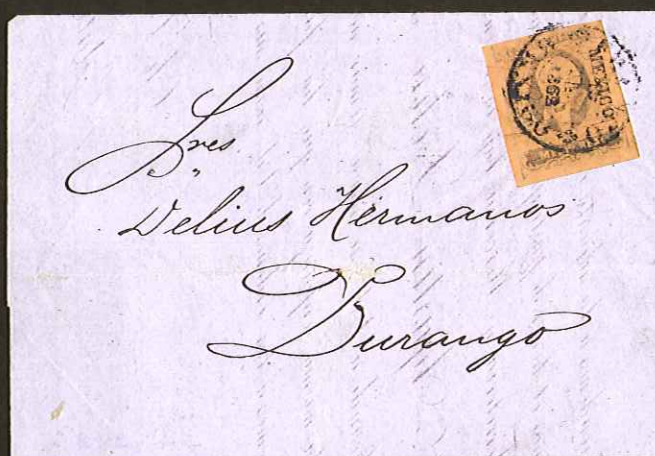 Sres
Delius Hermanos
Durango
MEXICO